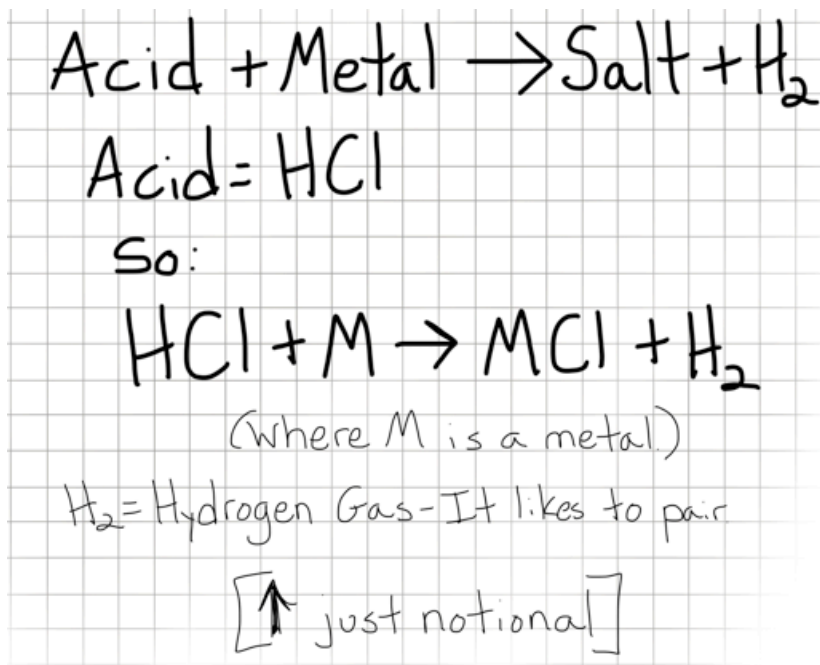 Acid + Metal → Salt + H₂
Acid = HCl
So:
HCl + M → MCl + H₂
(where M is a metal.)
H₂ = Hydrogen Gas - It likes to pair
[↑ just notional]